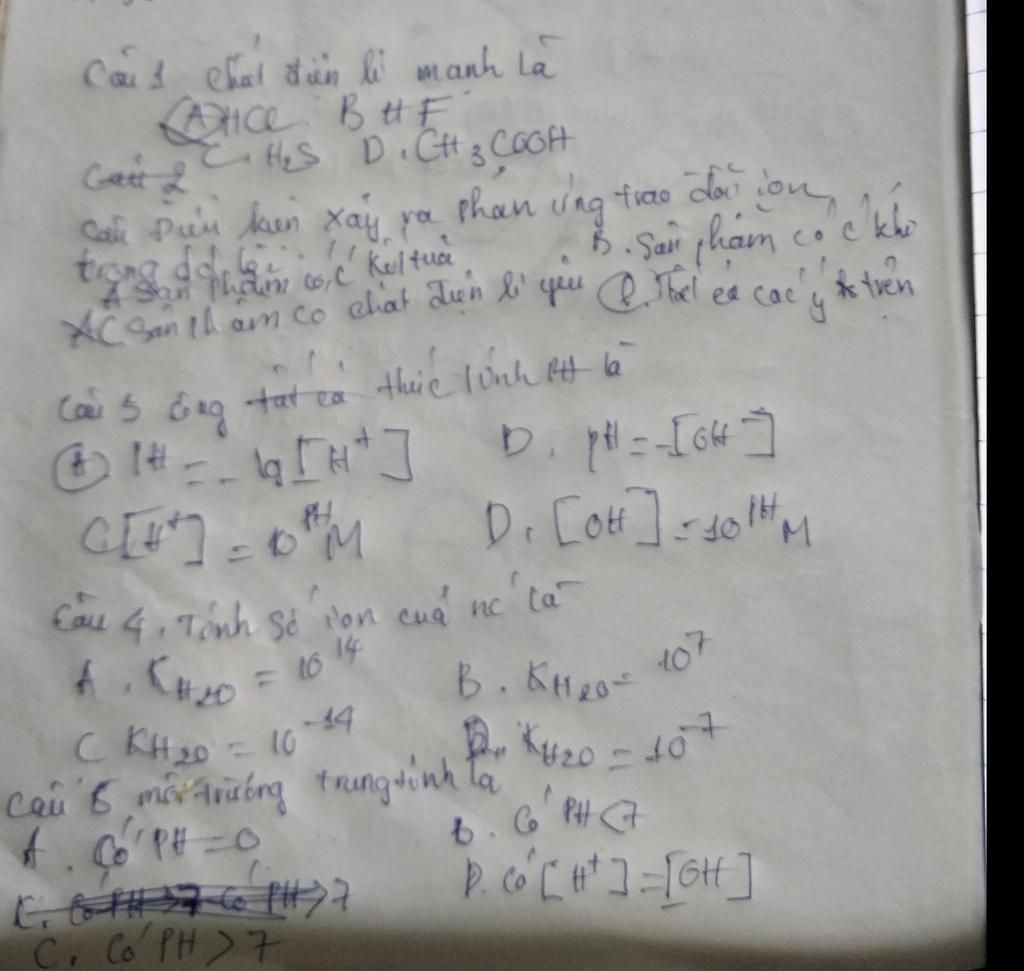 Câu 1 chất điện li mạnh là
(A) HCl. B HF
C. H2S D. CH3COOH
Câu 2
câu Điều kiện xảy ra phản ứng trao đổi ion
trong dd là: B. Sản phẩm có c khí
A Sản phẩm có c kết tủa
C Sản phẩm có chất điện li yếu D. Tất cả các ý trên
Câu 3 công tất cả thức tính PH là
(A) PH = - lg [H+] D. pH = -[OH-]
C [H+] = 10^PH M D. [OH-] = 10^PH M
Câu 4. Tính số ion của nc là
A. KH2O = 10^14 B. KH2O = 10^7
C KH2O = 10^-14 D. KH2O = 10^-7
Câu 5 môi trường trung tính là
A. Có PH = 0 B. Có PH < 7
C. Có PH > 7 Có PH > 7 D. Có [H+] = [OH]
C. Có PH > 7